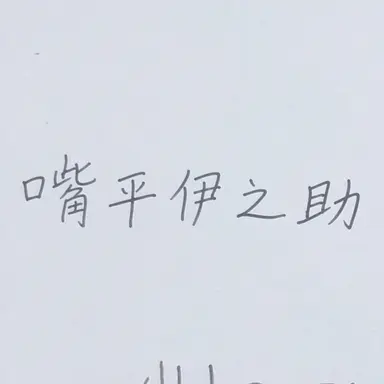 嘴平伊之助